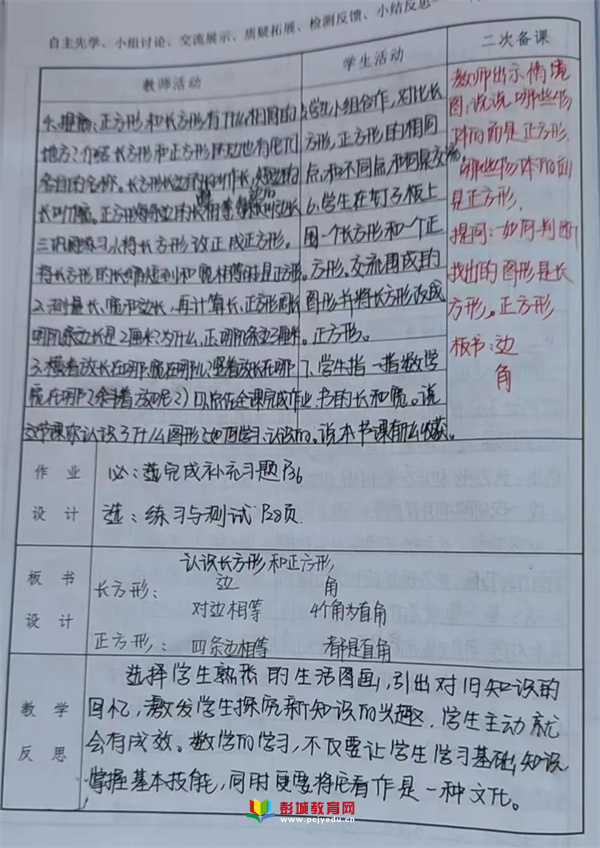 自主先学、小组讨论、交流展示、质疑拓展、检测反馈、小结反思
教师活动
学生活动
二次备课
4.提问:正方形和长方形有什么相同的
地方?介绍长方形和正方形
各自的名称。长方形长边的长叫作长,短边的
长叫宽。正方形每条边的长相等,边长
三.巩固练习 1.将长方形改正成正方形。
将长方形的长缩短到和宽相等时是正方形。
2.测量长、宽和边长,再计算长、正方形周长
明明条边长是2厘米?为什么,正明明条边3厘米。
3.横着放长在哪,宽在哪儿?竖着放长在哪
宽在哪?斜着放呢?全课完成作业
这节课你认识了什么图形?如何学习、认识的。
5.学生小组合作,对比长
方形,正方形的相同
点,和不同点,和同桌交流
6.学生在钉子板上
围一个长方形和一个正
方形。交流围成的
图形并将长方形改成
正方形。
7.学生指一指数学
书的长和宽。说
说本节课有什么收获。
教师出示情境
图,说说哪些物
体的面是正方形.
哪些物体的面
是正方形.
提问:如何判断
找出的图形是长
方形。正方形
板书:边
角
作业
设计
必:完成补充习题P36
选:练习与测试P38页.
板书
设计
认识长方形和正方形
边 角
长方形: 对边相等 4个角为直角
正方形: 四条边相等 都是直角
教学
反思
选择学生熟悉的生活图画,引出对旧知识的
回忆,激发学生探究新知识的兴趣,学生主动就
会有成效。数学的学习,不仅要让学生学习基础知识
掌握基本技能,同时更要将它看作是一种文化。
彭城教育网
www.pcjyedu.cn